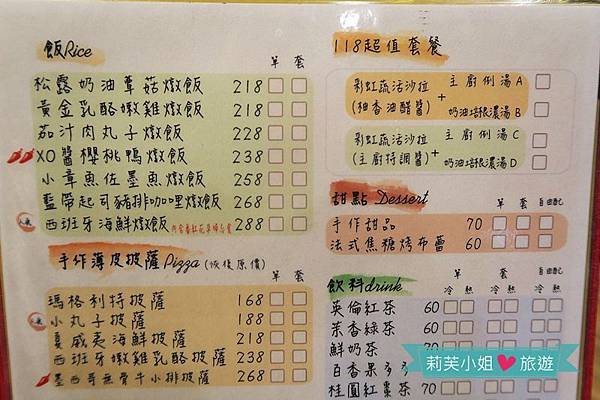 飯Rice
單 套
松露奶油蕈菇燉飯 218
黃金乳酪嫩雞燉飯 218
茄汁肉丸子燉飯 228
XO醬櫻桃鴨燉飯 238
小章魚佐墨魚燉飯 258
藍帶起司豬排咖哩燉飯 268
西班牙海鮮燉飯 288
手作薄皮披薩Pizza (恢復原價)
單 套
瑪格利特披薩 168
小丸子披薩 188
夏威夷海鮮披薩 188
西班牙嫩雞乳酪披薩 238
墨西哥無骨牛小排披薩 268
118超值套餐
彩虹蔬活沙拉
(柚香油醋醬)
+
主廚例湯A
奶油培根濃湯B
彩虹蔬活沙拉
(主廚特調醬)
+
主廚例湯C
奶油培根濃湯D
甜點 Dessert
單 套 自由配
手作甜品 70
法式焦糖烤布蕾 60
飲料drink
單 套 自由配
冷 熱 冷 熱 冷 熱
英倫紅茶 60
茉香綠茶 60
鮮奶茶 70
百香果多多
桂圓紅棗茶 70
莉芙小姐 旅遊